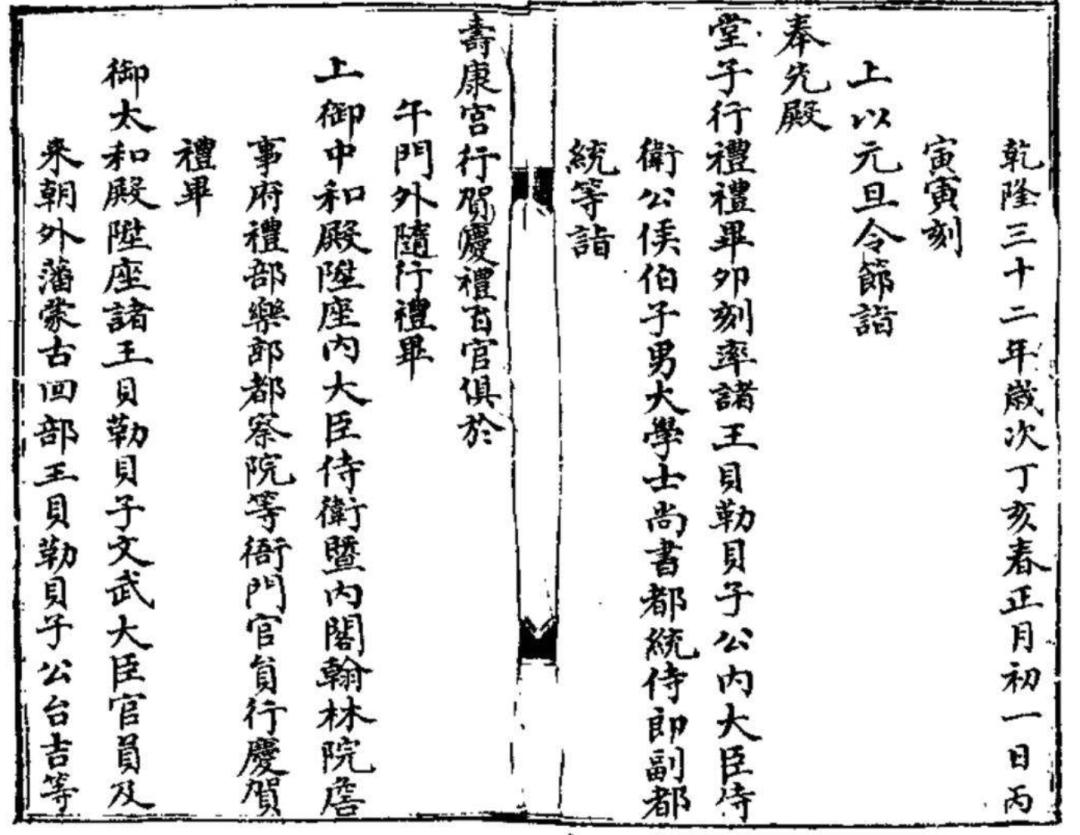 乾隆三十二年歲次丁亥春正月初一日丙
寅寅刻
上以元旦令節詣
奉先殿
堂子行禮禮畢卯刻率諸王貝勒貝子公內大臣侍
衛公侯伯子男大學士尚書都統侍郎副都
統等詣
壽康宮行賀慶禮百官俱於
午門外隨行禮畢
上御中和殿陞座內大臣侍衛暨內閣翰林院詹
事府禮部樂部都察院等衙門官員行慶賀
禮畢
御太和殿陞座諸王貝勒貝子文武大臣官員及
來朝外藩蒙古回部王貝勒貝子公台吉等